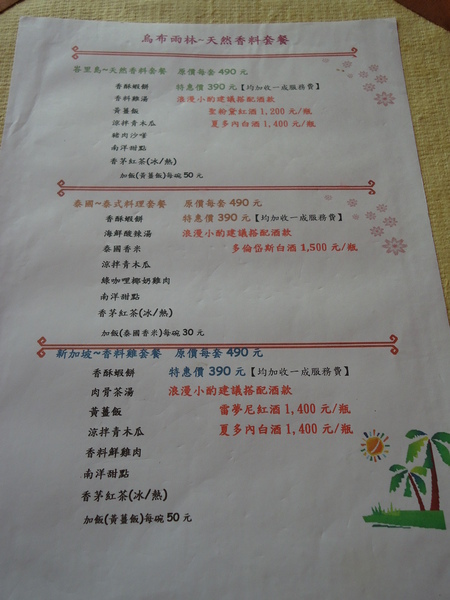 烏布雨林~天然香料套餐
峇里島~天然香料套餐 原價每套 490 元
香酥蝦餅 特惠價 390 元【均加收一成服務費】
香料雞湯 浪漫小酌建議搭配酒款
黃薑飯 聖粉黛紅酒 1,200 元/瓶
涼拌青木瓜 夏多內白酒 1,400 元/瓶
豬肉沙嗲
南洋甜點
香茅紅茶(冰/熱)
加飯(黃薑飯)每碗 50 元
泰國~泰式料理套餐 原價每套 490 元
香酥蝦餅 特惠價 390 元【均加收一成服務費】
海鮮酸辣湯 浪漫小酌建議搭配酒款
泰國香米 多倫岱斯白酒 1,500 元/瓶
涼拌青木瓜
綠咖哩椰奶雞肉
南洋甜點
香茅紅茶(冰/熱)
加飯(泰國香米)每碗 30 元
新加坡~香料雞套餐 原價每套 490 元
香酥蝦餅 特惠價 390 元【均加收一成服務費】
肉骨茶湯 浪漫小酌建議搭配酒款
黃薑飯 雷夢尼紅酒 1,400 元/瓶
涼拌青木瓜 夏多內白酒 1,400 元/瓶
香料鮮雞肉
南洋甜點
香茅紅茶(冰/熱)
加飯(黃薑飯)每碗 50 元